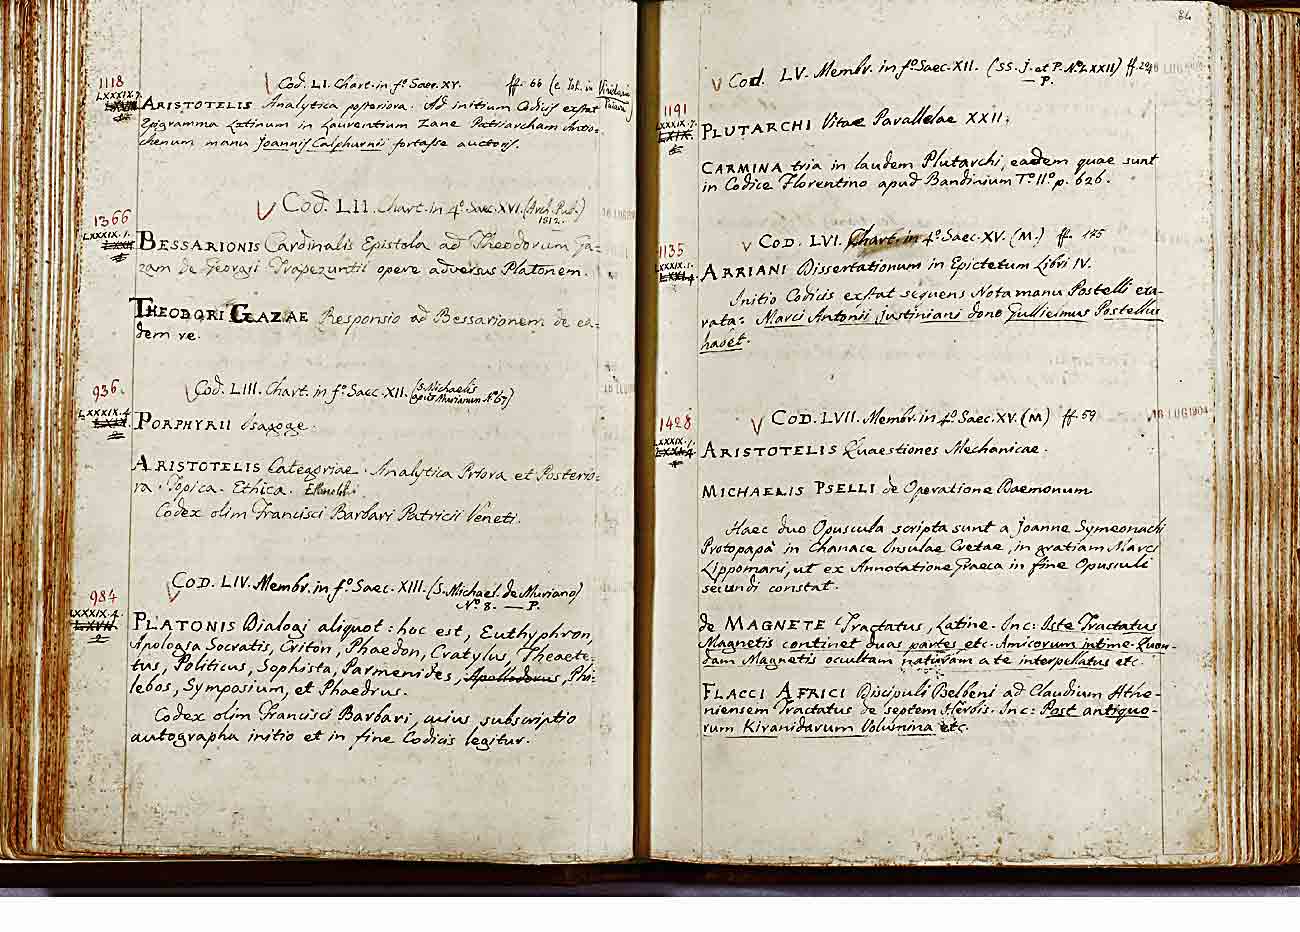 1118
LXXXIX.7.
Cod. LI. Chart. in fo. Saec. XV. ff. 66 (e Joh. in Viridario
Paduae)
ARISTOTELIS Analytica posteriora. Ad initium Codicis exstat
Epigramma Latinum in Laurentium Zane Patriarcham Antio-
chenum manu Joannis Calphurnii fortasse auctoris.
1366
LXXXIX.1.
Cod. LII. Chart. in 4o. Saec. XVI. (Arch. Pub.)
1812.
BESSARIONIS Cardinalis Epistola ad Theodorum Ga-
zam de Georgii Trapezuntii opere adversus Platonem.
THEODORI GAZAE Responsio ad Bessarionem de ea-
dem re.
936.
LXXXIX.4.
Cod. LIII. Chart. in fo. Saec. XII. (S. Michaelis
apud Murianum No. 67)
PORPHYRII Isagoge.
ARISTOTELIS Categoriae. Analytica Priora et Posterio-
ra. Topica. Ethica.
Codex olim Francisci Barbari Patricii Veneti.
984
LXXXIX.4.
COD. LIV. Membr. in fo. Saec. XIII. (S. Michael. de Muriano)
No. 8. — P.
PLATONIS Dialogi aliquot: hoc est, Euthyphron,
Apologia Socratis, Criton, Phaedon, Cratylus, Theaete-
tus, Politicus, Sophista, Parmenides, Apollodorus, Phi-
lebos, Symposium, et Phaedrus.
Codex olim Francisci Barbari, cuius subscriptio
autographa initio et in fine Codicis legitur.
84
1191
LXXXIX.7.
COD. LV. Membr. in fo. Saec. XII. (SS. J. et P. No. LXXII) ff. 291
— P.
16 LUG 1904
PLUTARCHI Vitae Parallelae XXII.
CARMINA tria in laudem Plutarchi, eadem quae sunt
in Codice Florentino apud Bandinium To. IIo. p. 626.
1135
LXXXIX.1.
COD. LVI. Chart. in 4o. Saec. XV. (M.) ff. 185
ARRIANI Dissertationum in Epictetum Libri IV.
Initio Codicis exstat sequens Nota manu Postelli exa-
rata: Marci Antonii Justiniani dono Gulielmus Postellus
habet.
1428
LXXXIX.1.
COD. LVII. Membr. in 4o. Saec. XV. (M) ff. 59
16 LUG 1904
ARISTOTELIS Quaestiones Mechanicae.
MICHAELIS PSELLI de Operatione Daemonum
Haec duo Opuscula scripta sunt a Joanne Symeonachi
Protopapà in Chanace Insulae Cretae, in gratiam Marci
Lippomani, ut ex Annotatione Graeca in fine Opusculi
secundi constat.
de MAGNETE Tractatus, Latine. Inc: Iste Tractatus
Magnetis continet duas partes etc. Amicorum intime Quon-
dam Magnetis occultam naturam a te interpellatus etc.
FLACCI AFRICI Discipuli Belbeni ad Claudium Athe-
niensem Tractatus de septem Herbis. Inc: Post antiquo-
rum Kiranidarum Volumina etc.